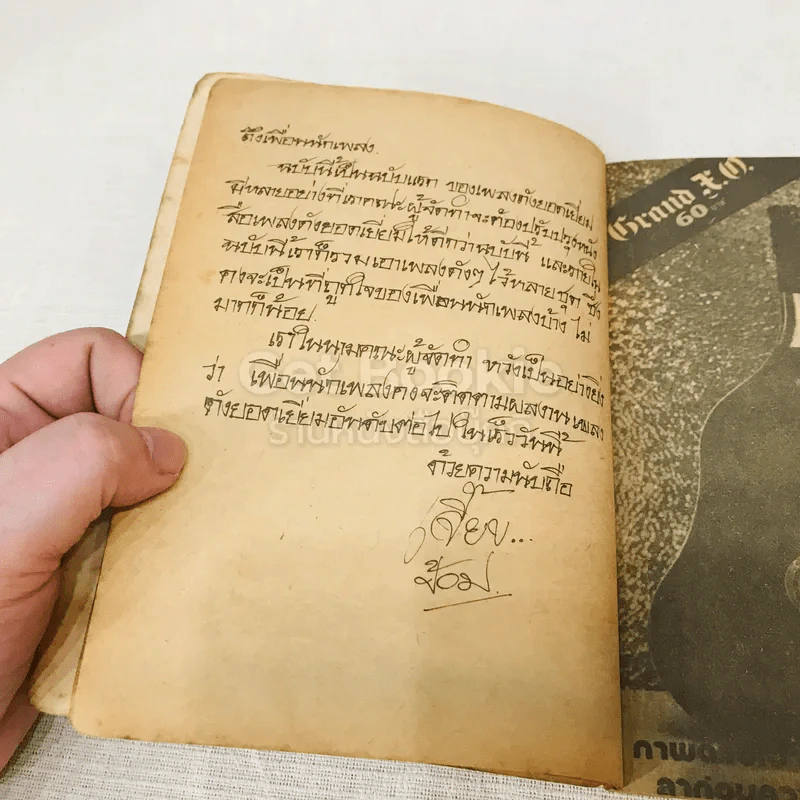 ถึงเพื่อนนักเพลง.
ฉบับนี้เป็นฉบับแรก ของเพลงดังยอดเยี่ยม
มีหลายอย่างที่เราคณะผู้จัดทำจะต้องปรับปรุงหนัง
สือเพลงดังยอดเยี่ยมให้ดีกว่าฉบับนี้ และภายใน
ฉบับนี้เราก็รวมเอาเพลงดังๆ ไว้หลายชุด ซึ่ง
คงจะเป็นที่ถูกใจของเพื่อนนักเพลงบ้าง ไม่
มากก็น้อย.
เราในนามคณะผู้จัดทำ หวังเป็นอย่างยิ่ง
ว่า เพื่อนนักเพลงคงจะติดตามผลงาน เพลง
ดังยอดเยี่ยมอันดับต่อไปในเร็ววันนี้
ด้วยความนับถือ
Grand X.O.
60
Get Bookie